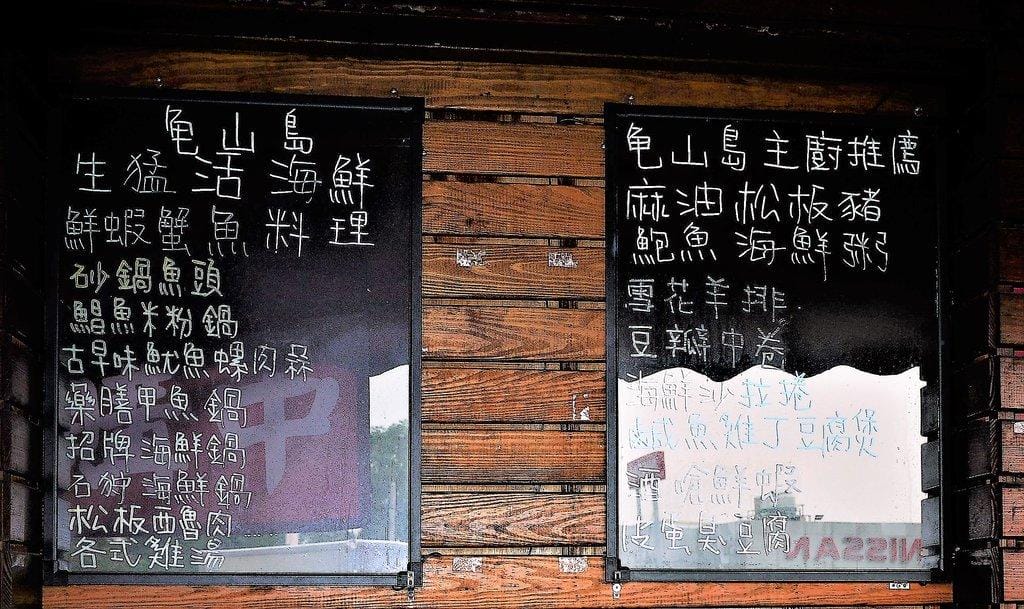 龟山島
生猛活海鮮
鮮蝦蟹魚料理
砂鍋魚頭
鯧魚米粉鍋
古早味魷魚螺肉蒜
藥膳甲魚鍋
招牌海鮮鍋
石狩海鮮鍋
松板西魯肉
各式雞湯
龟山島主廚推薦
麻油松板豬
鮑魚海鮮粥
雪花羊排
豆瓣中卷
海鮮沙拉捲
鹹魚雞丁豆腐煲
酒嗆鮮蝦
皮虫臭豆腐
NISSAN